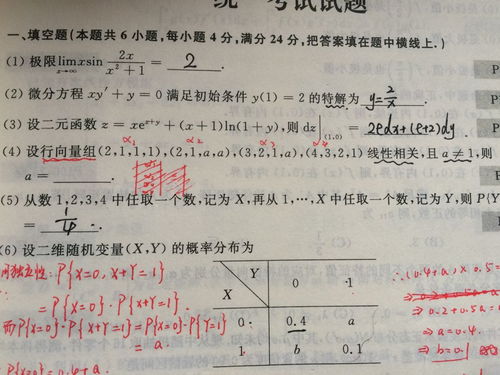 统一考试试题
一、填空题(本题共 6 小题,每小题 4 分,满分 24 分,把答案填在题中横线上.)
(1) 极限lim x→∞ xsin 2x/(x²+1) = 2 .
(2) 微分方程 xy′ + y = 0 满足初始条件 y(1) = 2 的特解为 y=2/x .
(3) 设二元函数 z = xe^(x+y) + (x+1)ln(1+y),则 dz|(1,0) = 2edx+(e+2)dy .
α₁ α₂ α₃
(4) 设行向量组(2,1,1,1),(2,1,a,a),(3,2,1,a),(4,3,2,1) 线性相关,且 a ≠ 1,则
a = .
(5) 从数 1,2,3,4 中任取一个数,记为 X,再从 1,⋯,X 中任取一个数,记为 Y,则 P{Y
= 1/4 .
(6) 设二维随机变量(X,Y) 的概率分布为
独立性: P{X=0, X+Y=1}
= P{X=0}·P{X+Y=1}
而P{X=0}·P{X+Y=1}=P{X=0}·P{Y=1}
= a.
P{X=0}=0.4+a.
Y
X
0 1
0 0.4 a
1 b 0.1
∴(0.4+a) × 0.5=
⇒ 0.2+0.5a=
⇒ a=0.4.
⇒ b=0.1